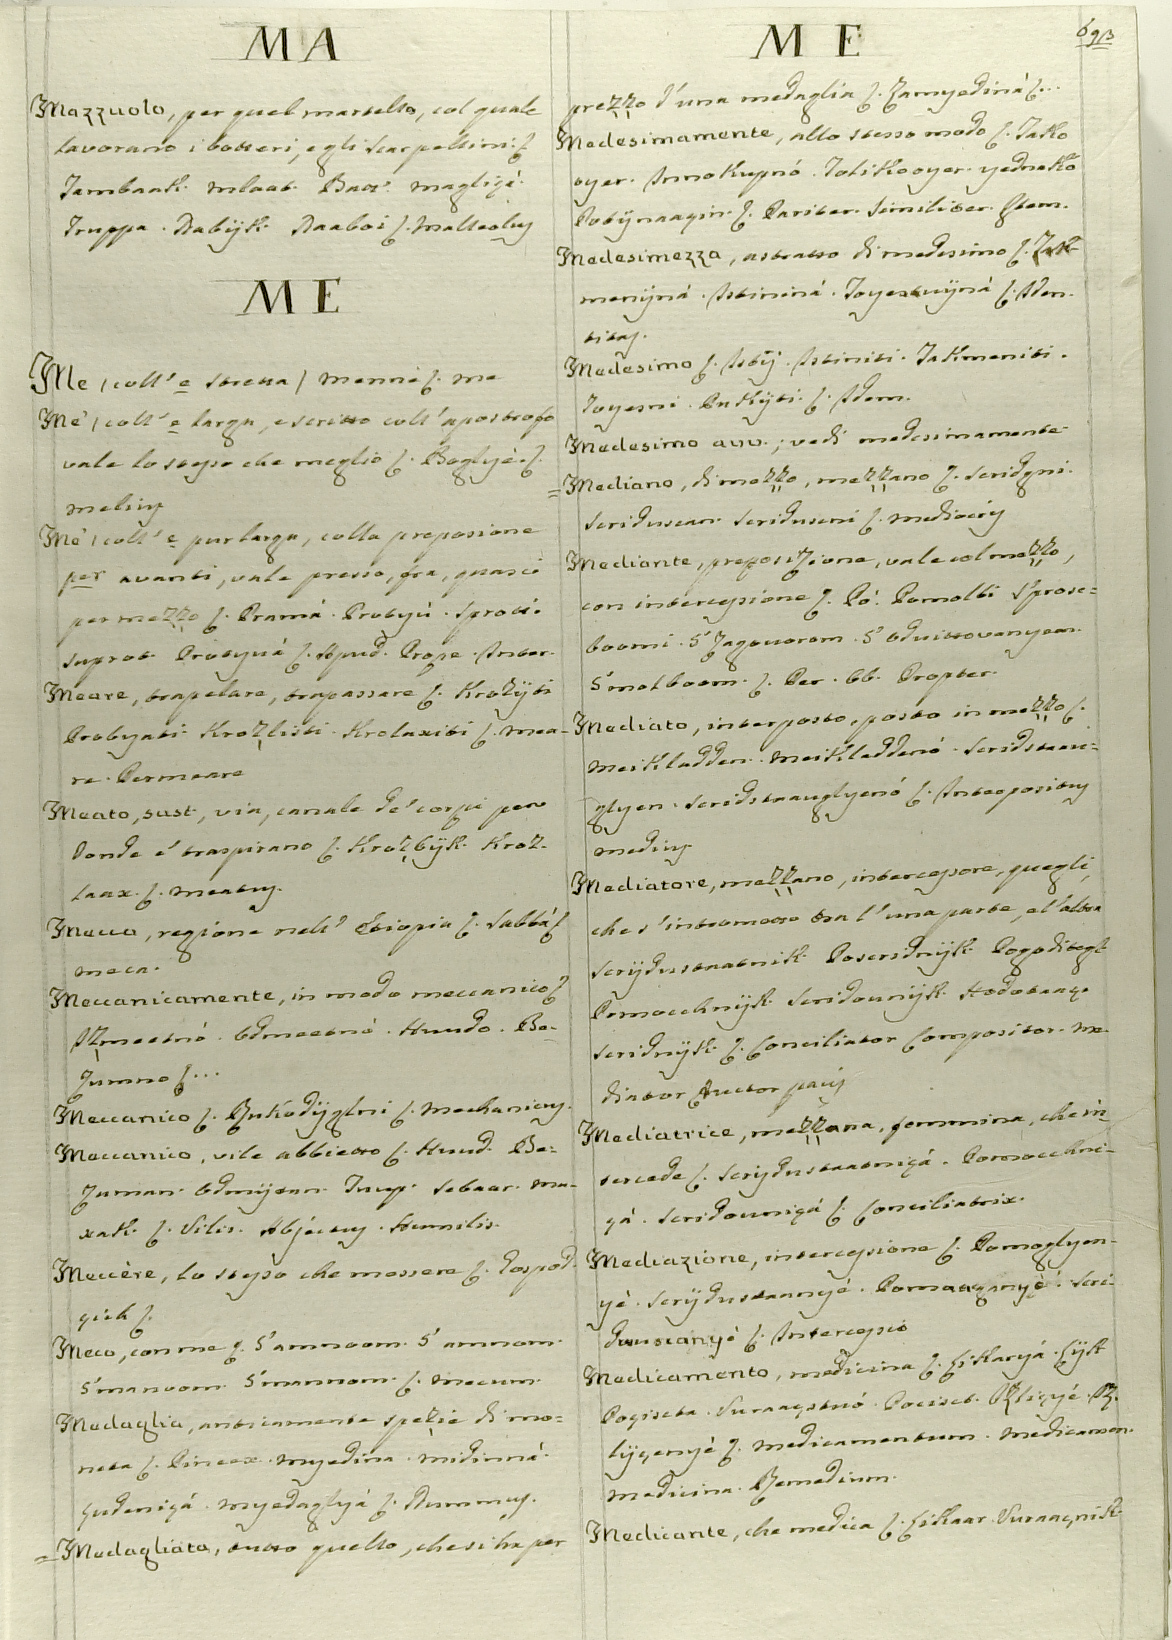 MA
Mazzuolo, per quel martello, col quale
lavorano i botteri, e gli scarpellini ſ.
Tambaak. mlaat. Baat. magligá.
Truppa. Rabijk. Raaboi ſ. Malleoluſ
ME
Me (coll' e stretta) mennè ſ. me
Me' (coll' e larga, e scritto coll' apostrofo
vale lo stesso che meglio ſ. Boglyé. ſ.
meliuſ
Me' (coll' e pur larga, colla preposizione
per avanti, vale presso, fra, quasi
per mezzo ſ. Pramá. Protyú. Sproti.
suprot. Protyvá ſ. Apud. Prope. Inter.
Meare, trapelare, trapassare ſ. Krozijti
Probyati. Krozlisti. Krolaxiti ſ. mea-
re. Permeare
Meato, sust., via, canale de' corpi per
donde e' traspirano ſ. Krozbijk. Kroz-
laax. ſ. meatuſ.
Mecca, regione nell' Etiopia ſ. Sabbá ſ.
meca.
Meccanicamente, in modo meccanico ſ.
Izmeetnó. Odmeetnó. Huudo. Be-
zumno ſ...
Meccanico ſ. Rukodijglni ſ. Mechanicuſ.
Meccanico, vile abbietto ſ. Huud. Be-
zuman. Odmijtan. Trup. Sebaar. Ma-
xak. ſ. Vilis. Abjectuſ. Humilis.
Meccère, lo stesso che messere ſ. Gospod-
gich ſ.
Meco, con me ſ. S' amnoom. S' amnom.
S' manoom. S' mannom. ſ. mecum.
Medaglia, anticamente spezie di mo=
neta ſ. Pineex. myedina. midinná.
Gudenigá. myedaglyá ſ. Nummuſ.
= Medagliata, tutto quello, che si ha per
ME
693
prezzo d'una medaglia ſ. Zamyediná ſ...
Medesimamente, allo stesso modo ſ. Tako
oyer. Innokupnó. Tolikooyer. yednakó
Potijnaagin. ſ. Pariter. Similiter. Item.
Medesimezza, astratto di medesimo ſ. Tak-
menijná. Istininá. Toyestvijná ſ. Iden-
titaſ.
Medesimo ſ. Istij. Istiniti. Takmeniti.
Toyesni. Putkijti. ſ. Idem.
Medesimo avv.; vedi medesimamente
= Mediano, di mezzo, mezzano ſ. Seridgni.
Seridusean. Seriduseni ſ. mediocriſ
Mediante, preposizione, vale col mezzo,
con intercessione ſ. Pó. Pomolbi. S'prose-
boomi. S'zagovorom. S' oduittovanyem.
S'molboom. ſ. Per. Ob. Propter.
Mediato, interposto, posto in mezzo ſ.
meiKladden. meiKladdenó. Seridstaav-
glyen. Seridstaauglyenó ſ. Interpositus
mediuſ.
Mediatore, mezzano, intercessore, quegli,
che s' intromette tra l'una parte, e l'altra
Serijdustaatnik. Poseridnijk. Pogoditegl
Pomocchnijk. Seridounijk. Hodotaaq.
Seridnijk ſ. Conciliator. Compositor. me-
diator. Auctor paciſ
Mediatrice, mezzana, femmina, che in-
tercede ſ. Serijdustaatnigá. Pomocchni-
gá. Seridounigá ſ. Conciliatrix.
Mediazione, intercessione ſ. Pomoglyen-
yé. Serijdustaannyé. Pomaaganyé. Seri-
douscanyé ſ. Intercessio
Medicamento, medicina ſ. Likaryá. Lijk
Pogiseta. Vuraagstuó. Pociset. Izligyé. Iz-
lijgenyé ſ. Medicamentum. Medicamen.
medicina. Remedium.
Medicante, che medica ſ. Likaar. Vuraagnik.